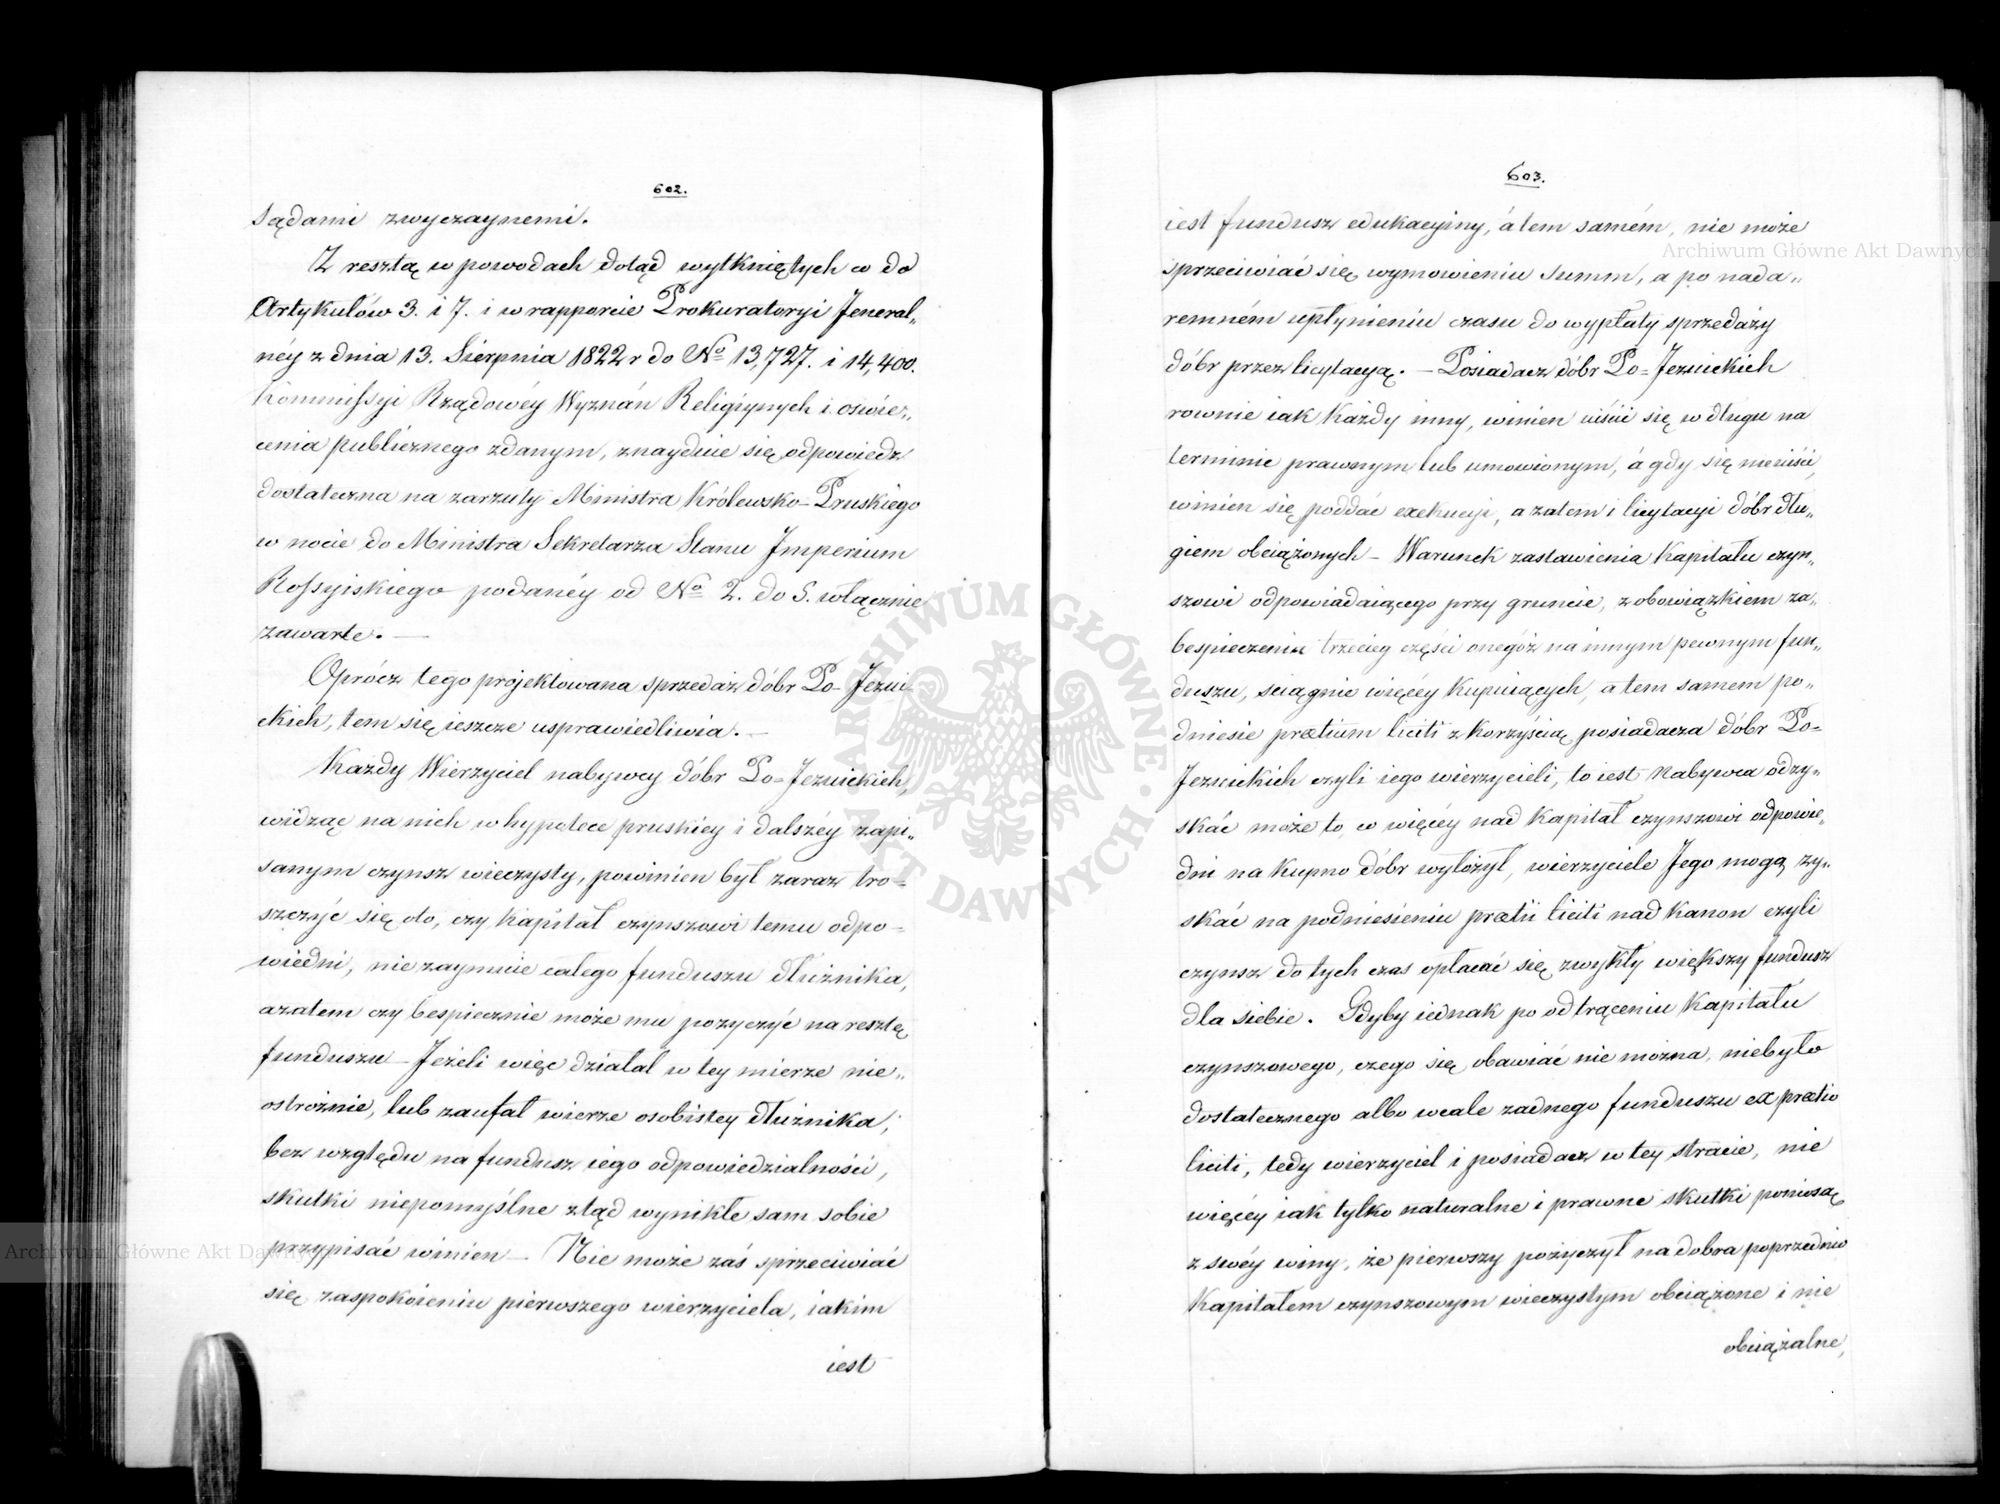 602.
sądami zwyczaynemi.
Z resztą w powodach dotąd wytkniętych co do
Artykułów 3. i 7. i w rapporcie Prokuratoryi Jeneral„
néy z dnia 13. Sierpnia 1822 r do No 13,727. i 14,400.
Kommissyi Rządowéy Wyznán Religiynych i oswie„
cenia publicznego zdanym, znayduie się odpowiedz
dostateczna na zarzuty Ministra Królewsko-Pruskiego
w nocie do Ministra Sekretarza Stanu Imperium
Rossyiskiego podanéy od No 2. do 5. włącznie
zawarte. —
Oprócz tego projektowana sprzedaż dóbr Po-Jezui
ckich, tem się ieszcze usprawiedliwia. —
Każdy Wierzyciel nabywcy dóbr Po-Jezuickich,
widząc na nich w hypotece pruskiey i dalszéy zapi„
sanym czynsz wieczysty, powinien był zaraz tro-
szczyć się oto, czy kapitał czynszowi temu odpo-
wiedni, nie zaymuie całego funduszu dłużnika,
azatem czy bespiecznie może mu pozyczyć na resztę
funduszu — Jeżeli więc działał w tey mierze nie„
ostrożnie, lub zaufał wierze osobistey dłużnika,
bez względu na fundusz iego odpowiedzialności,
skutki niepomyślne ztąd wynikłe sam sobie
przypisać winien — Nie może zaś sprzeciwiać
się zaspokoieniu pierwszego wierzyciela, iakim
iest
603.
iest fundusz edukacyiny, á tem samém, nie może
sprzeciwiać się wymowieniu summ, a po nada„
remném upłynieniu czasu do wypłaty sprzedaży
dóbr przez licytacyą. — Posiadacz dóbr Po-Jezuickich
rownie iak każdy inny, winien uiścić się w długu na
terminie prawnym lub umowionym, á gdy się nieuiści,
winien się poddać exekucyi, a zatem i licytacyi dóbr dłu„
giem obciążonych — Warunek zastawienia Kapitału czyn„
szowi odpowiadaiącego przy gruncie, z obowiązkiem za„
bespieczenia trzeciey części onegóż na innym pewnym fun„
duszu, sciągnie więcéy kupuiących, a tem samem po„
dniesie prætium liciti z korzyścią posiadacza dóbr Po-
Jezuickich czyli iego wierzycieli, to iest Nabywca odzy„
skać może to, co więcéy nad Kapitał czynszowi odpowie„
dni na kupno dóbr wyłożył, wierzyciele Jego mogą zy„
skać na podniesieniu prætii liciti nad kanon czyli
czynsz do tych czas opłacać się zwykły większy fundusz
dla siebie. Gdyby iednak po odtrąceniu Kapitału
czynszowego, czego się obawiać nie można, niebyło
dostatecznego albo wcale żadnego funduszu ex prætio
liciti, tedy wierzyciel i posiadacz w tey stracie, nie
więcéy iak tylko naturalne i prawne skutki poniosą
z swéy winy, że pierwszy pożyczył na dobra poprzednio
Kapitałem czynszowym wieczystym obciążone i nie
obciążalne,
Archiwum Główne Akt Dawnych
Archiwum Główne Akt Dawnych
ARCHIWUM GŁÓWNE AKT DAWNYCH